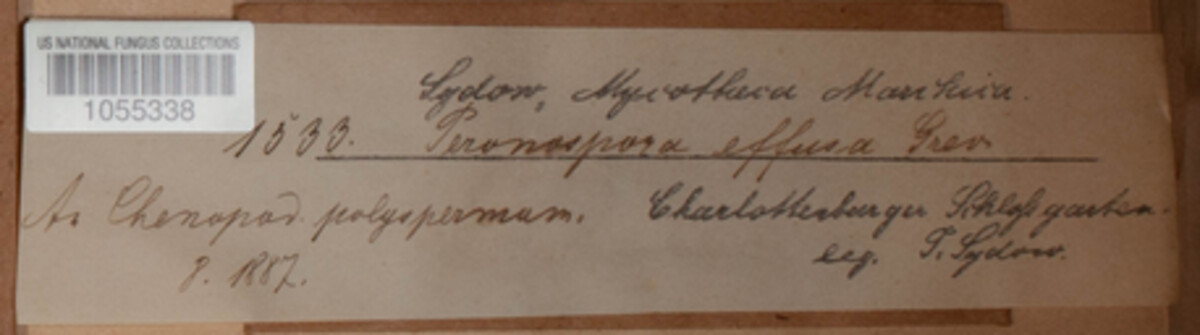 US NATIONAL FUNGUS COLLECTIONS
1055338
Sydow, Mycotheca Marchica.
1533. Peronospora effusa Grev.
An Chenopod. polyspermum. Charlottenburger Schloßgarten.
8. 1887. leg. P. Sydow.